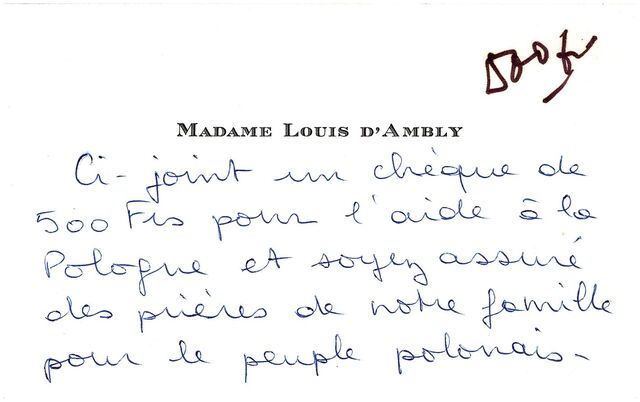 500 fr
MADAME LOUIS D'AMBLY
Ci-joint un chèque de
500 Frs pour l'aide à la
Pologne et soyez assuré
des prières de notre famille
pour le peuple polonais-